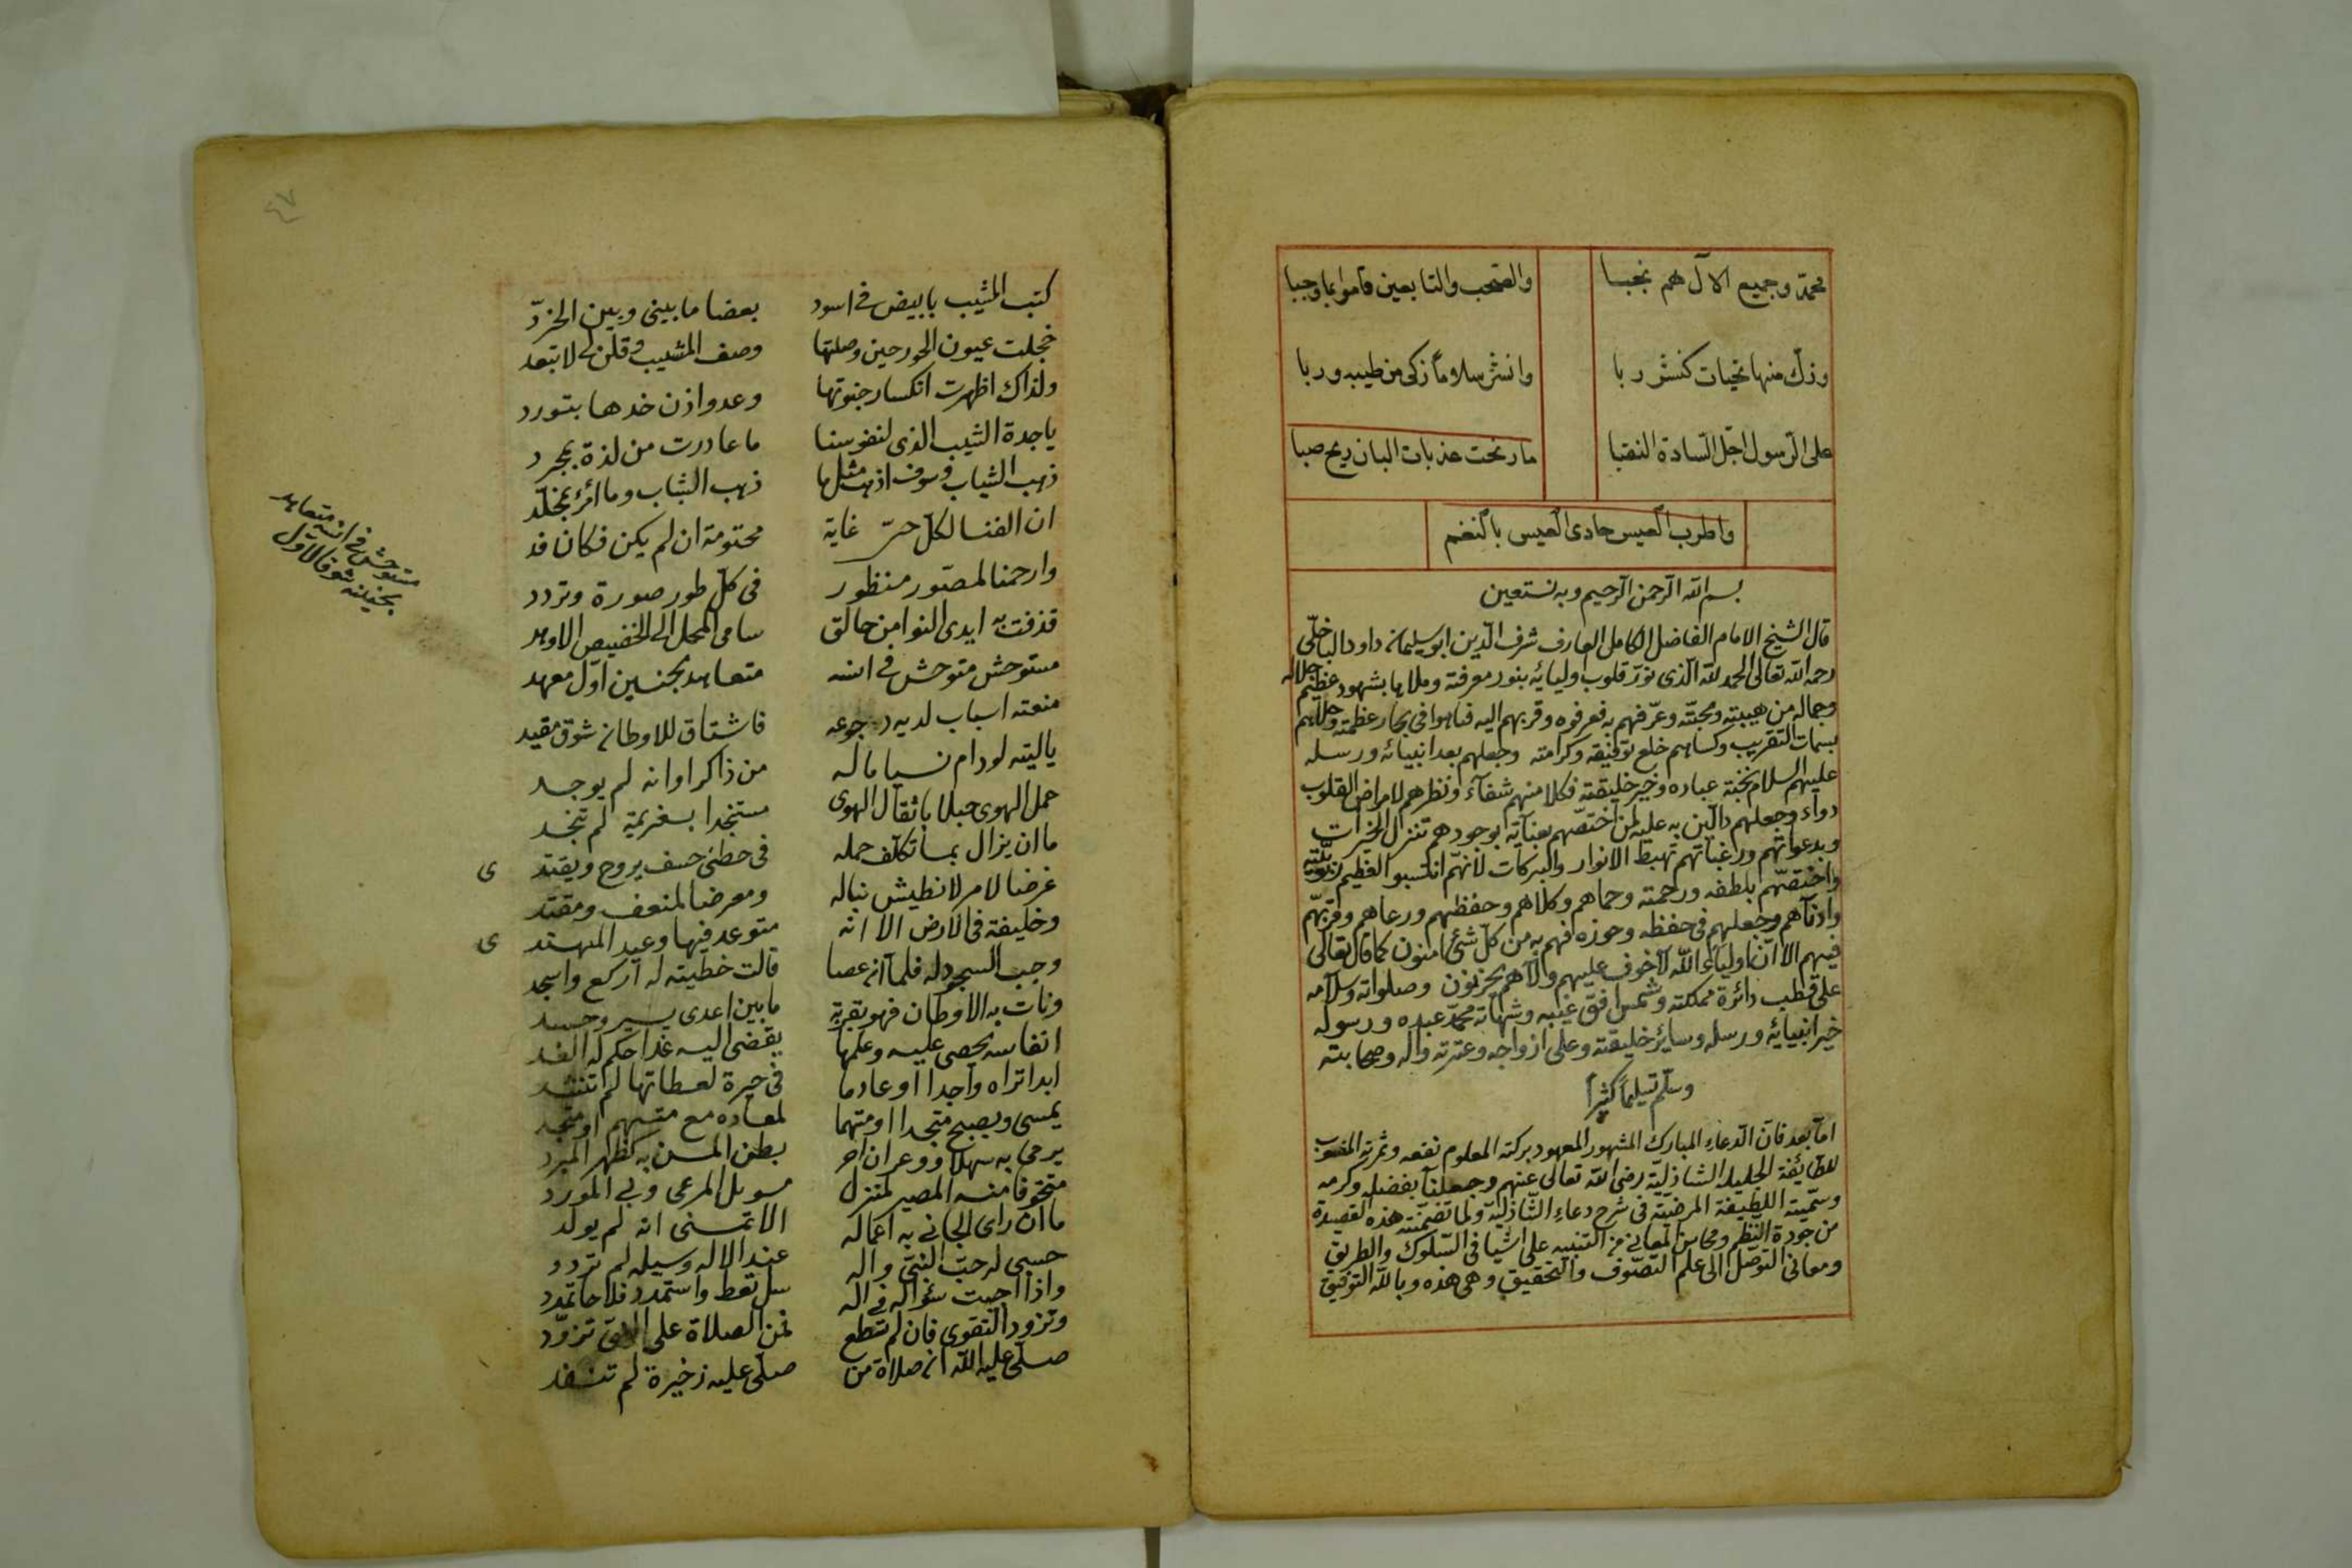 محمد وجميع الآل هم نجبا والصحب والتابعين قاموا بما وجبا
وزك منها تحيات كنشر ربا وانشر سلاما زكى من طيبه وربا
على الرسول اجل السادة النقبا ما رنحت عذبات البان ريح صبا
واطرب العيس حادى العيس بالنغم
بسم الله الرحمن الرحيم وبه نستعين
قال الشيخ الامام الفاضل الكامل العارف شرف الدين ابو سليمان داود الباخلّى
رحمه الله تعالى الحمد لله الذى نور قلوب اوليائه بنور معرفته وملاها بشهود عظيم جلاله
وجماله من هيبته ومحبته وعرفهم به فعرفوه وقربهم اليه فتاهوا فى بحار عظمته وحلاهم
بسمات التقريب وكساهم خلع توفيقه وكرامته وجعلهم بعد انبيائه ورسله
عليهم السلام نخبة عباده وخير خليقته فكلامهم شفآء ونظرهم لامراض القلوب
دوآء وجعلهم دالّين به عليه لمن اختصهم بعنايته بوجودهم تتنزل الخيرات
وبدعواتهم ورغباتهم تهبط الانوار والبركات لانهم انتسبوا العظيم
واختصّهم بلطفه ورحمته وحماهم وكلاهم وحفظهم ورعاهم وقربهم
وادناهم وجعلهم فى حفظه وحوزه فهم به من كل شئ امنون كما قال تعالى
فيهم الا ان اولياء الله لا خوف عليهم ولا هم يحزنون وصلواته وسلامه
على قطب دائرة مملكته وشمس افق غيبه وشهادته محمد عبده ورسوله
خير انبيائه ورسله وسائر خليقته وعلى ازواجه وعترته واله وصحابته
وسلم تسليما كثيرا
اما بعد فان الدعاء المبارك المشهور المعهود بركته المعلوم نفعه وثمرته المنسوب
للطائفة الجليلة الشاذلية رضى الله تعالى عنهم وجعلنا بفضله وكرمه
وسميته اللطيفة المرضية فى شرح دعاء الشاذلية ولما تضمنته هذه القصيدة
من جودة النظم ومحاسن المعانى من التنبيه على اشيا فى السلوك والطريق
ومعانى التوصل الى علم التصوف والتحقيق وهى هذه وبالله التوفيق
٤٧
كتب المشيب بابيض فى اسود بغضا ما بينى وبين الخرّد
خجلت عيون الحور حين وصلتها وصف المشيب وقلن لى لا تبعد
ولذاك اظهرت انكسار جفونها وغدوا اذن خدها بتورد
يا جدة الشيب الذى لنفوسنا ما غادرت من لذة بمجرد
ذهب الشباب وسوف اذهب مثلها ذهب الشباب وما امرئ بمخلد
ان الفنا لكل حىّ غاية محتومة ان لم يكن فكان قد
وارحمتا لمصور متطور فى كل طور صورة وتردد
قذفت به ايدى النوا من حالق سامى المحل الى الحضيض الاوهد
مستوحش متوحش فى انسه متعاهد بحنين اول معهد
منعته اسباب لديه رجوعه فاشتاق للاوطان شوق مقيد
يا ليته لو دام نسيا ما له من ذاكر او انه لم يوجد
حمل الهوى جبلا باثقال الهوى مستنجدا بعزيمة لم تنجد
ما ان يزال بما تكلف حمله فى خطتى خسف يروح ويغتد ى
غرضا لامر لا تطيش نباله ومعرضا لمنعف ومفند
وخليفة فى الارض الا انه متوعد فيها وعيد المهتد ى
وجب السجود له فلما ان عصا قالت خطيته له اركع واسجد
ونات به الاوطان فهو بقربة ما بين اعدى يسير وحسد
انفاسه تحصى عليه وعلمها يقضى اليه غدا حكم له الغد
ابدا تراه واجدا او عادما فى حيرة لعطاتها لم تنشد
يمسى ويصبح متجدا او متهما لمعاده مع متهم او متجد
يرمى به سهلا ووعران احر بطن المسن به كظهر المبرد
متخوفا منه المصير لمنزل مسوبل المرعى وبى المورد
ما ان راى الجانى به اعماله الا تمنى انه لم يولد
حسبى له حب النبى واله عند الاله وسيله لم تردد
واذا اجبت سؤاله فى اله سل تعط واستمدد فلاحا تمدد
وتزود التقوى فان لم تستطع فمن الصلاة على النبى تزود
صلى عليه الله ان صلاة من صلى عليه ذخيرة لم تنفد
مستوحش فى انسه متعاهد
بحنينه شوقا لاول